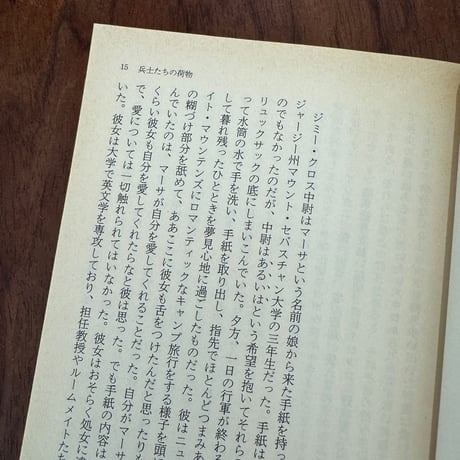 15 兵士たちの荷物
ジミー・クロス中尉はマーサという名前の娘から来た手紙を持っ
ジャージー州マウント・セバスチャン大学の三年生だった。手紙は
のでもなかったのだが、中尉はあるいはという希望を抱いてそれら
リュックサックの底にしまいこんでいた。夕方、一日の行軍が終わる
って水筒の水で手を洗い、手紙を取り出し、指先でほとんどつまみあ
して暮れ残ったひとときを夢見心地に過ごしたものだった。彼はニュ
イト・マウンテンズにロマンティックなキャンプ旅行をする様子を頭に
の糊づけ部分を舐めて、ああここに彼女も舌をつけたんだと思ったりも
んでいたのは、マーサが自分を愛してくれることだった。自分がマーサ
くらい彼女も自分を愛してくれたらなと彼は思った。でも手紙の内容は
で、愛については一切触れられてはいなかった。彼女はおそらく処女に
いた。彼女は大学で英文学を専攻しており、担任教授やルームメイトたち